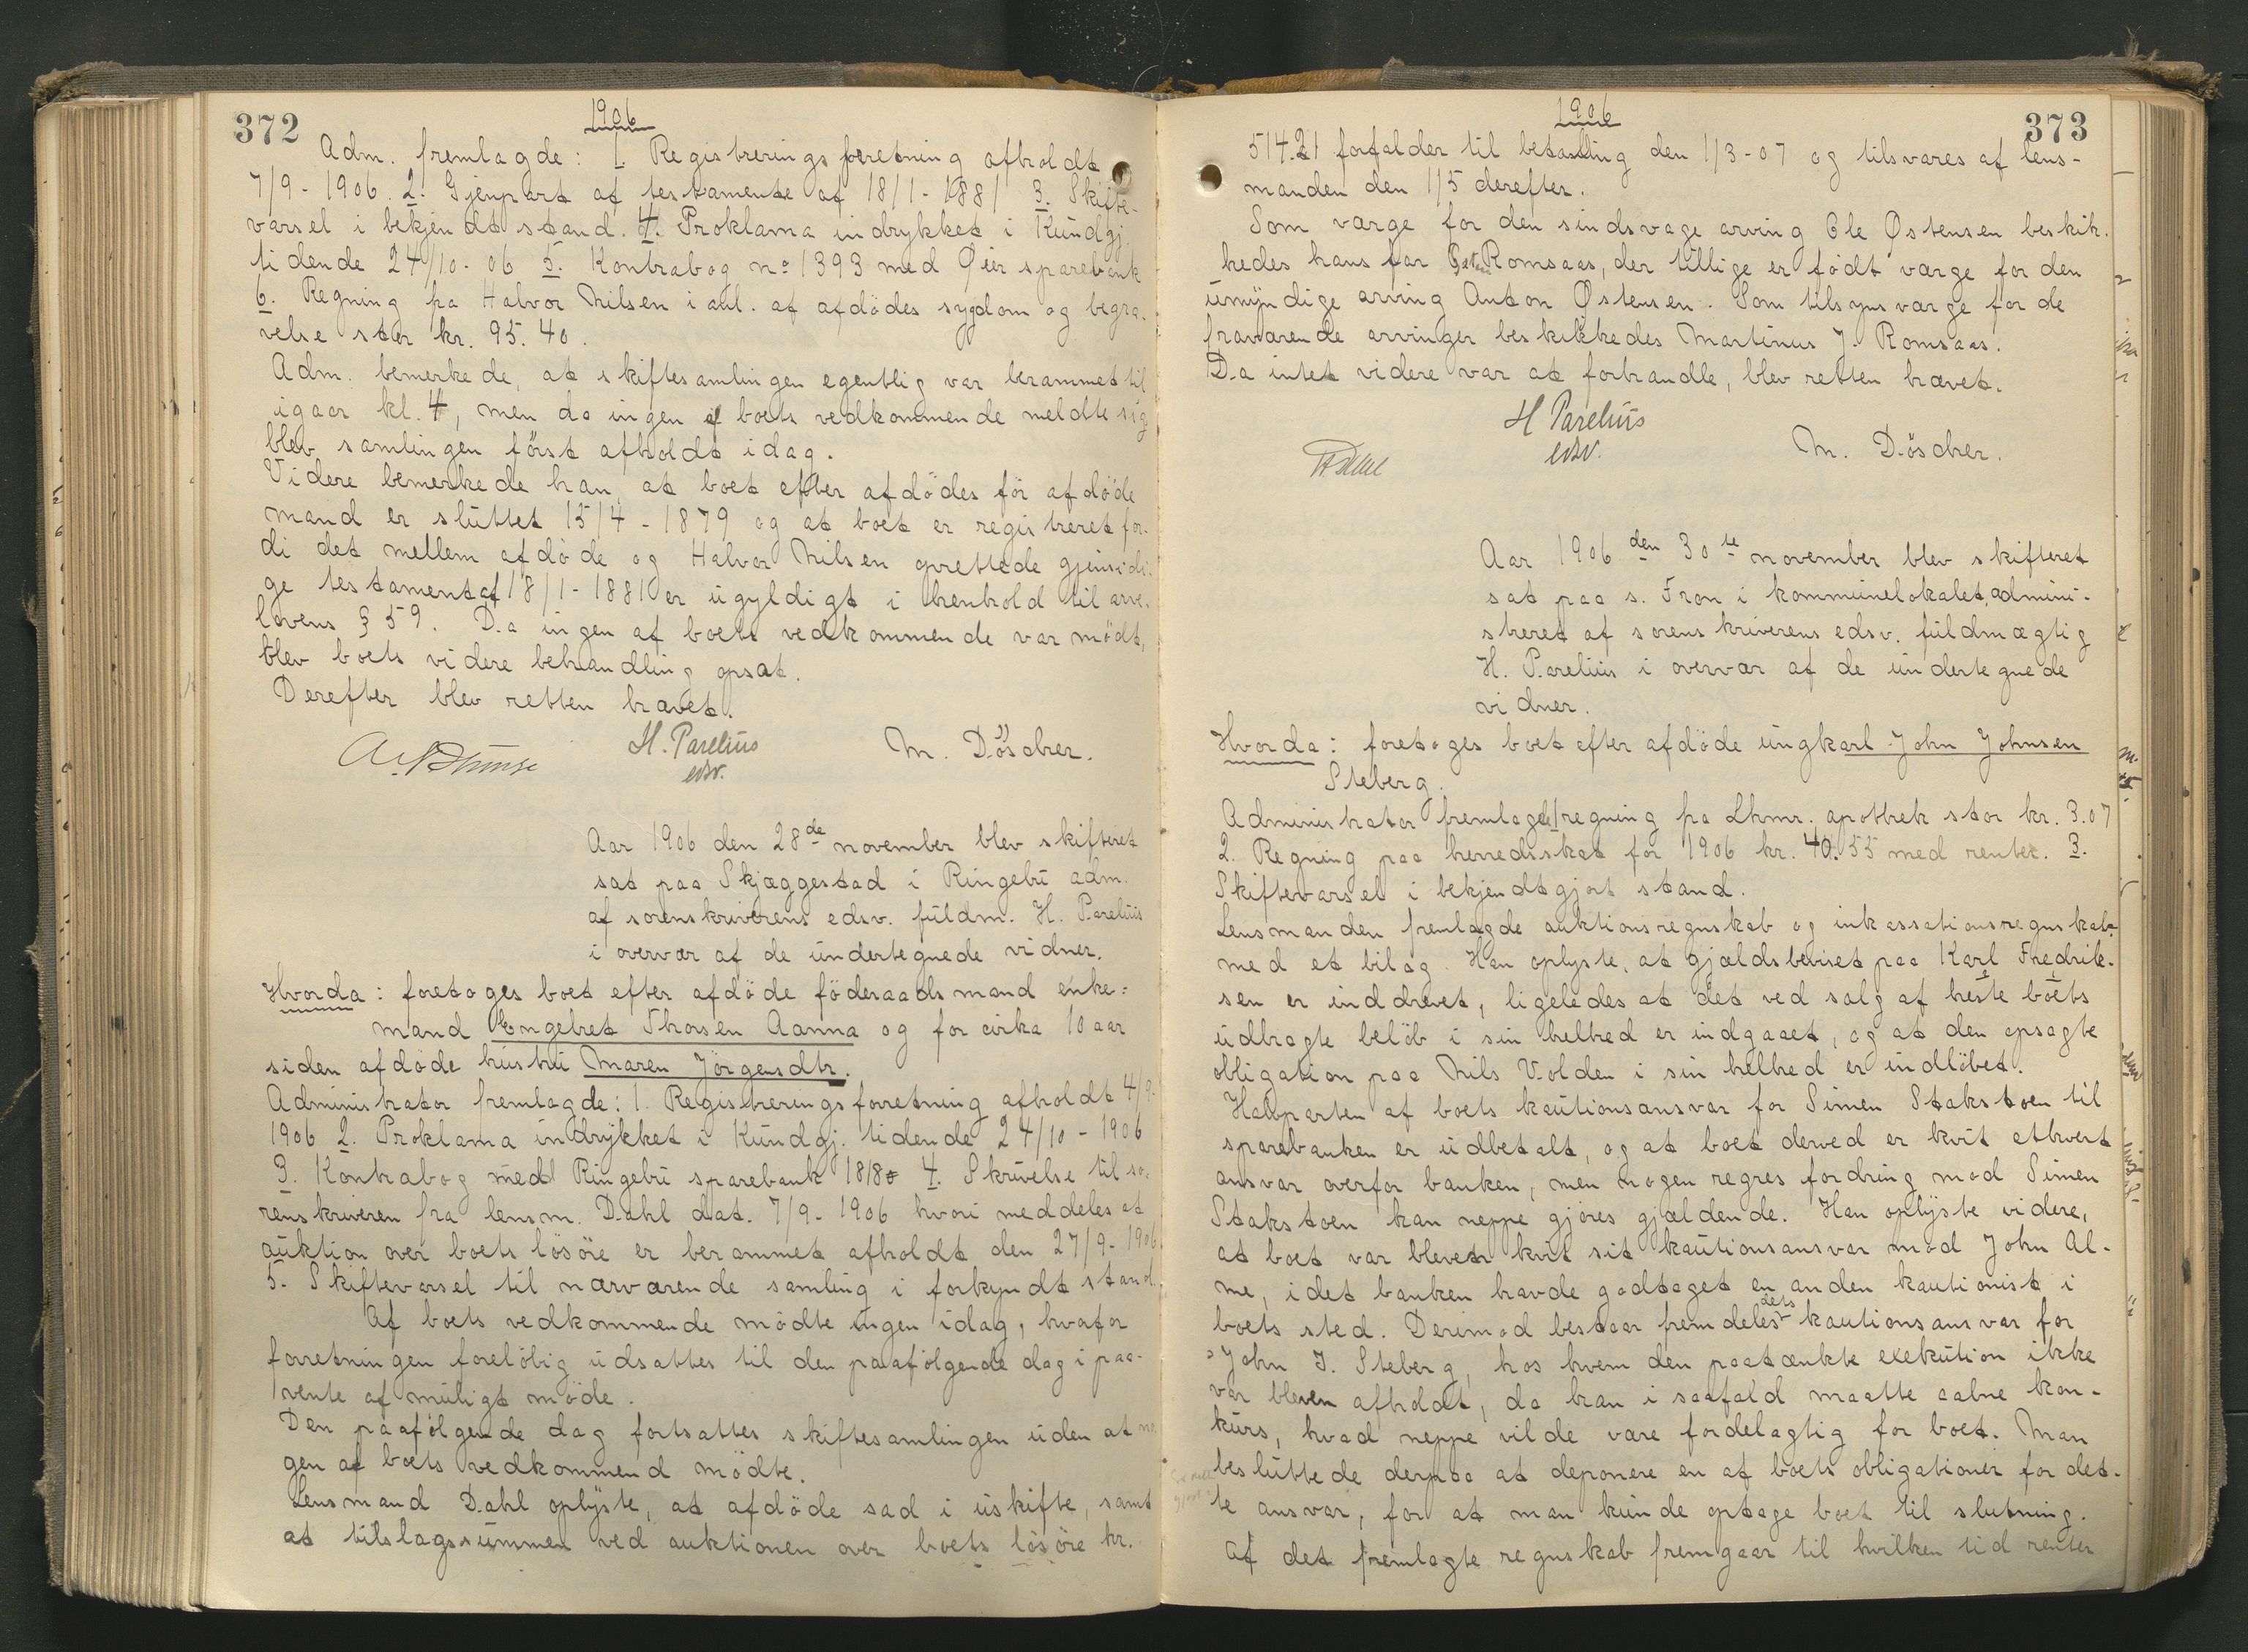 372
1906
Adm. fremlagde: 1. Registreringsforretning afholdt
7/9-1906. 2. Gjenpart af testamente af 18/1-1881 3. Skifte-
varsel i bekjendt stand. 4. Proklama indrykket i Kundgj.
tidende 24/10-06 5. Kontrabog no 1393 med Øier sparebank
6. Regning fra Halvor Nilsen i anl. af afdödes sygdom og begra-
velse stor kr. 95.40.
Adm. bemerkede, at skiftesamlingen egentlig var berammet til
igaar kl. 4, men da ingen af boets vedkommende meldte sig
blev samlingen först afholdt idag.
Videre bemerkede han, at boet efter afdödes för afdöde
mand er sluttet 15/4-1879 og at boet er registreret for-
di det mellem afdöde og Halvor Nilsen oprettede gjensidi-
ge testament af 18/1-1881 er ugyldigt i henhold til arve-
lovens § 59. Da ingen af boets vedkommende var mödt,
blev boets videre behandling opsat.
Derefter blev retten hævet.
H. Parelius
edsv.
M. Döscher.
Aar 1906 den 28de november blev skifteret
sat paa Skjæggestad i Ringebu adm.
af sorenskriverens edsv. fuldm. H. Parelius
i overvær af de undertegnede vidner.
Hvorda: foretoges boet efter afdöde föderaadsmand enke-
mand Engebret Thorsen Aanna og for cirka 10 aar
siden afdöde hustru Maren Jörgensdtr.
Administrator fremlagde: 1. Registreringsforretning afholdt 4/9-
1906 2. Proklama indrykket i Kundgj. tidende 24/10-1906
3. Kontrabog med Ringebu sparebank 4. Skrivelse til so-
renskriveren fra lensm. Dahl dat. 7/9-1906 hvori meddeles at
auktion over boets lösöre er berammet afholdt den 27/9-1906
5. Skiftevarsel til nærværende samling i forkyndt stand.
Af boets vedkommende mödte ingen idag, hvorfor
forretningen forelöbig udsattes til den paafölgende dag i paa-
vente af muligt möde.
Den paafölgende dag fortsattes skiftesamlingen uden at no-
gen af boets vedkommend mödte.
Lensmand Dahl oplyste, at afdöde sad i uskifte, samt
at tilslagssummen ved auktionen over boets lösöre kr.
373
1906
514.21 forfalder til betaling den 1/3-07 og tilsvares af lens-
manden den 1/5 derefter.
Som værge for den sindsvage arving Ole Østensen beskik-
kedes hans far Romsaas, der tillige er födt værge for den
umyndige arving Anton Østensen. Som tilsynsværge for de
fraværende arvinger beskikkedes Martinus J. Romsaas.
Da intet videre var at forhandle, blev retten hævet.
H Parelius
edsv.
M. Döscher.
Aar 1906 den 30te november blev skifteret
sat paa s. Fron i kommunelokalet, admini-
streret af sorenskriverens edsv. fuldmægtig
H. Parelius i overvær af de undertegnede
vidner.
Hvorda: foretoges boet efter afdöde ungkarl John Johnsen
Steberg.
Administrator fremlagde 1 regning fra Lhmr. apothek stor kr. 3.07
2. Regning paa herredsskat for 1906 kr. 40.55 med renter. 3.
Skiftevarsel i bekjendtgjort stand.
Lensmanden fremlagde auktionsregnskab og inkassationsregnskab
med et bilag. Han oplyste, at gjældsbeviset paa Karl Fredrik-
sen er inddrevet, ligeledes at det ved salg af heste boets
udbragte belöb i sin helhed er indgaaet, og at den opsagte
obligation paa Nils Volden i sin helhed er indlöbet.
Halvparten af boets kautionsansvar for Simen Stakstoen til
sparebanken er udbetalt, og at boet derved er kvit ethvert
ansvar overfor banken, men nogen regresfordring mod Simen
Stakstoen kan neppe gjøres gjældende. Han oplyste videre,
at boet var blevet kvit sit kautionsansvar mod John Al-
me, idet banken havde godtaget en anden kautionist i
boets sted. Derimod bestaar fremdeles dets kautionsansvar for
John J. Steberg, hos hvem den paatænkte exekution ikke
var bleven afholdt, da han i saafald maatte aabne kon-
kurs, hvad neppe vilde være fordelagtig for boet. Man
besluttede derpaa at deponere en af boets obligationer for det-
te ansvar, for at man kunde optage boet til slutning.
Af det fremlagte regnskab fremgaar til hvilken tid renter